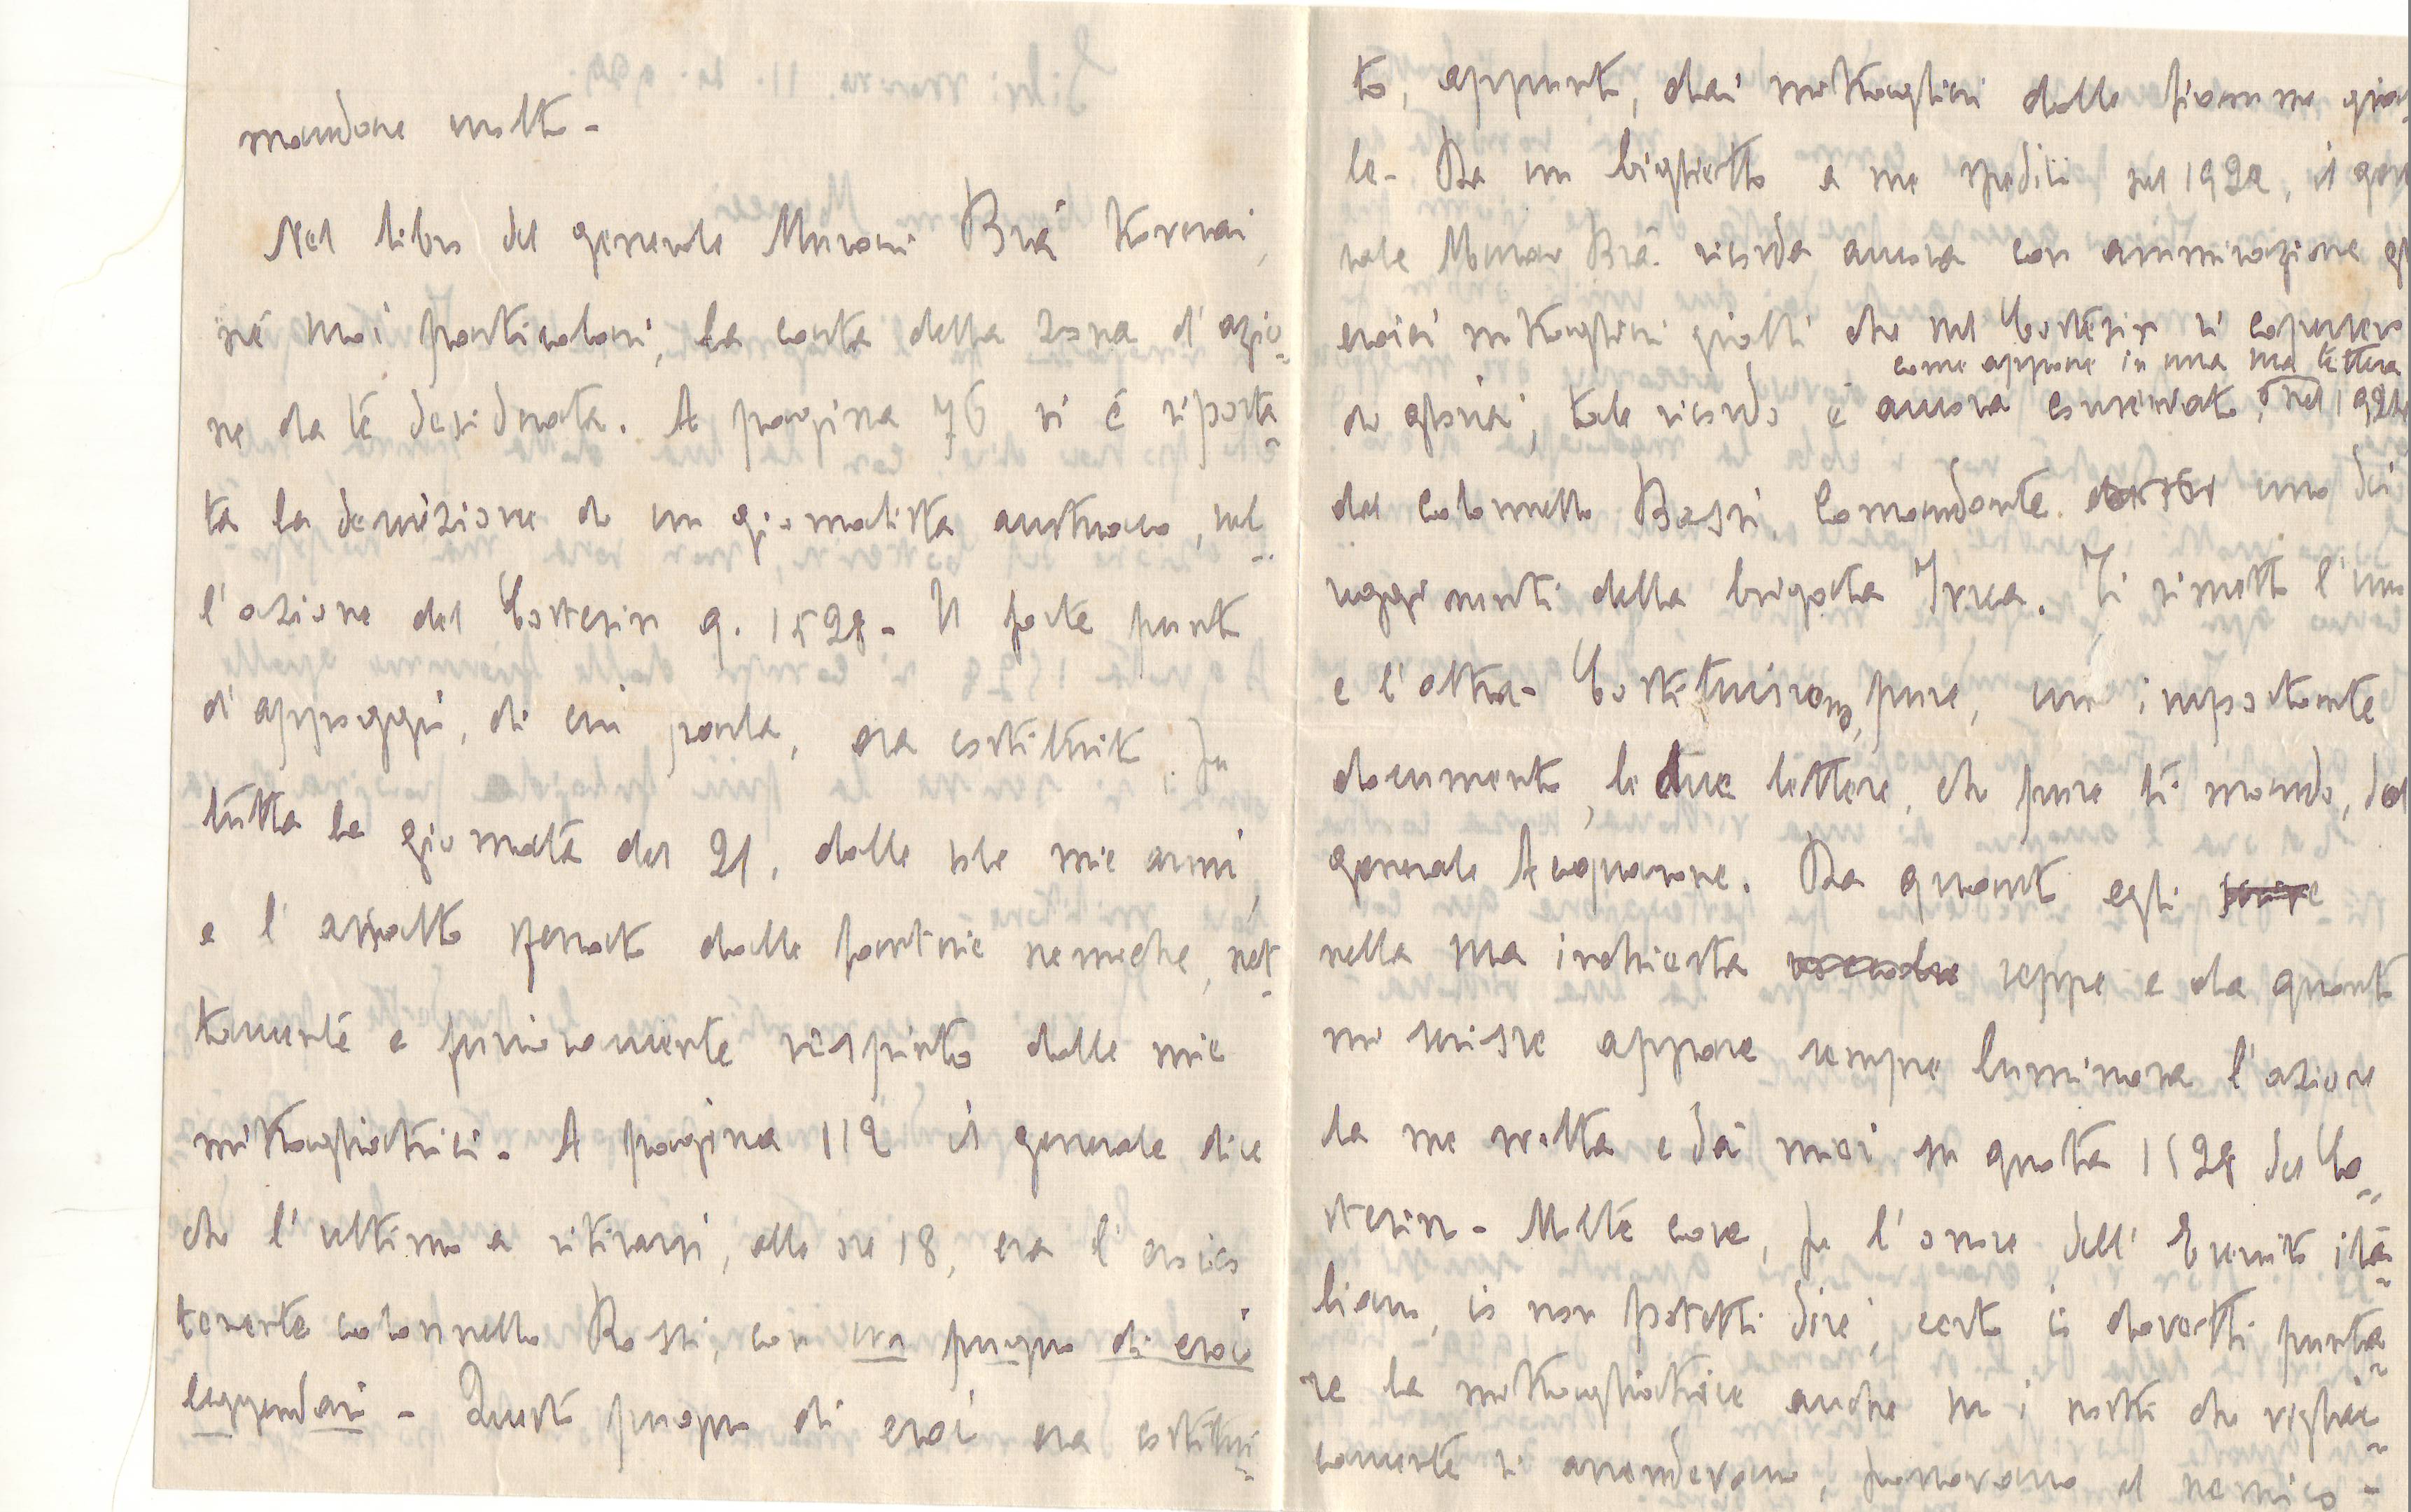 mandone molto -
Nel libro del generale Muroni Brà troverai,
nè suoi particolari, la carta della zona d'azio-
ne da tè desiderata. A pagina 76 vi è riporta-
ta la descrizione di un giornalista austriaco, sul-
l'azione del Costesin q. 1528 - Il forte punto
d'appoggio, di cui parla, era costituito, per
tutta la giornata del 21, dalle sole mie armi,
e l'assalto sferrato dalle fanterie nemiche, net-
tamente e furiosamente respinto dalle mie
mitragliatrici. A pagina 112 il generale dice
che l'ultimo a ritirarsi, alle ore 18, era l'eroico
tenente colonnello Rossi, con un pugno di eroi
leggendari - Questo pugno di eroi era costitui-
to, appunto, dai mitraglieri dalle fiamme gial-
le - Da un biglietto a me spedito nel 1924, il gene
rale Murari Brà ricorda ancora con ammirazione gl
eroici mitraglieri gialli che sul Costesin si copersero
come appare in una sua lettera
di gloria; tale ricordo è ancora conservato, nel 1924
dal colonnello Bassi, Comandante uno dei
reggimenti della brigata Ivrea. Ti rimetto l'uno
e l'altra - Costituiscono, pure, un importante
documento, le due lettere, che pure ti mando, del
generale Acquarone. Da quanto egli
nella sua inchiesta seppe e da quanto
mi scrisse appare sempre luminosa l'azione
da me svolta e dai miei su quota 1528 del Co-
stesin - Molte cose, per l'onore dell'Esercito ita-
liano, io non potetti dire, certo io dovetti punta-
re la mitragliatrice anche su i nostri che vigliac-
camente si arrendevano, passavano al nemico -